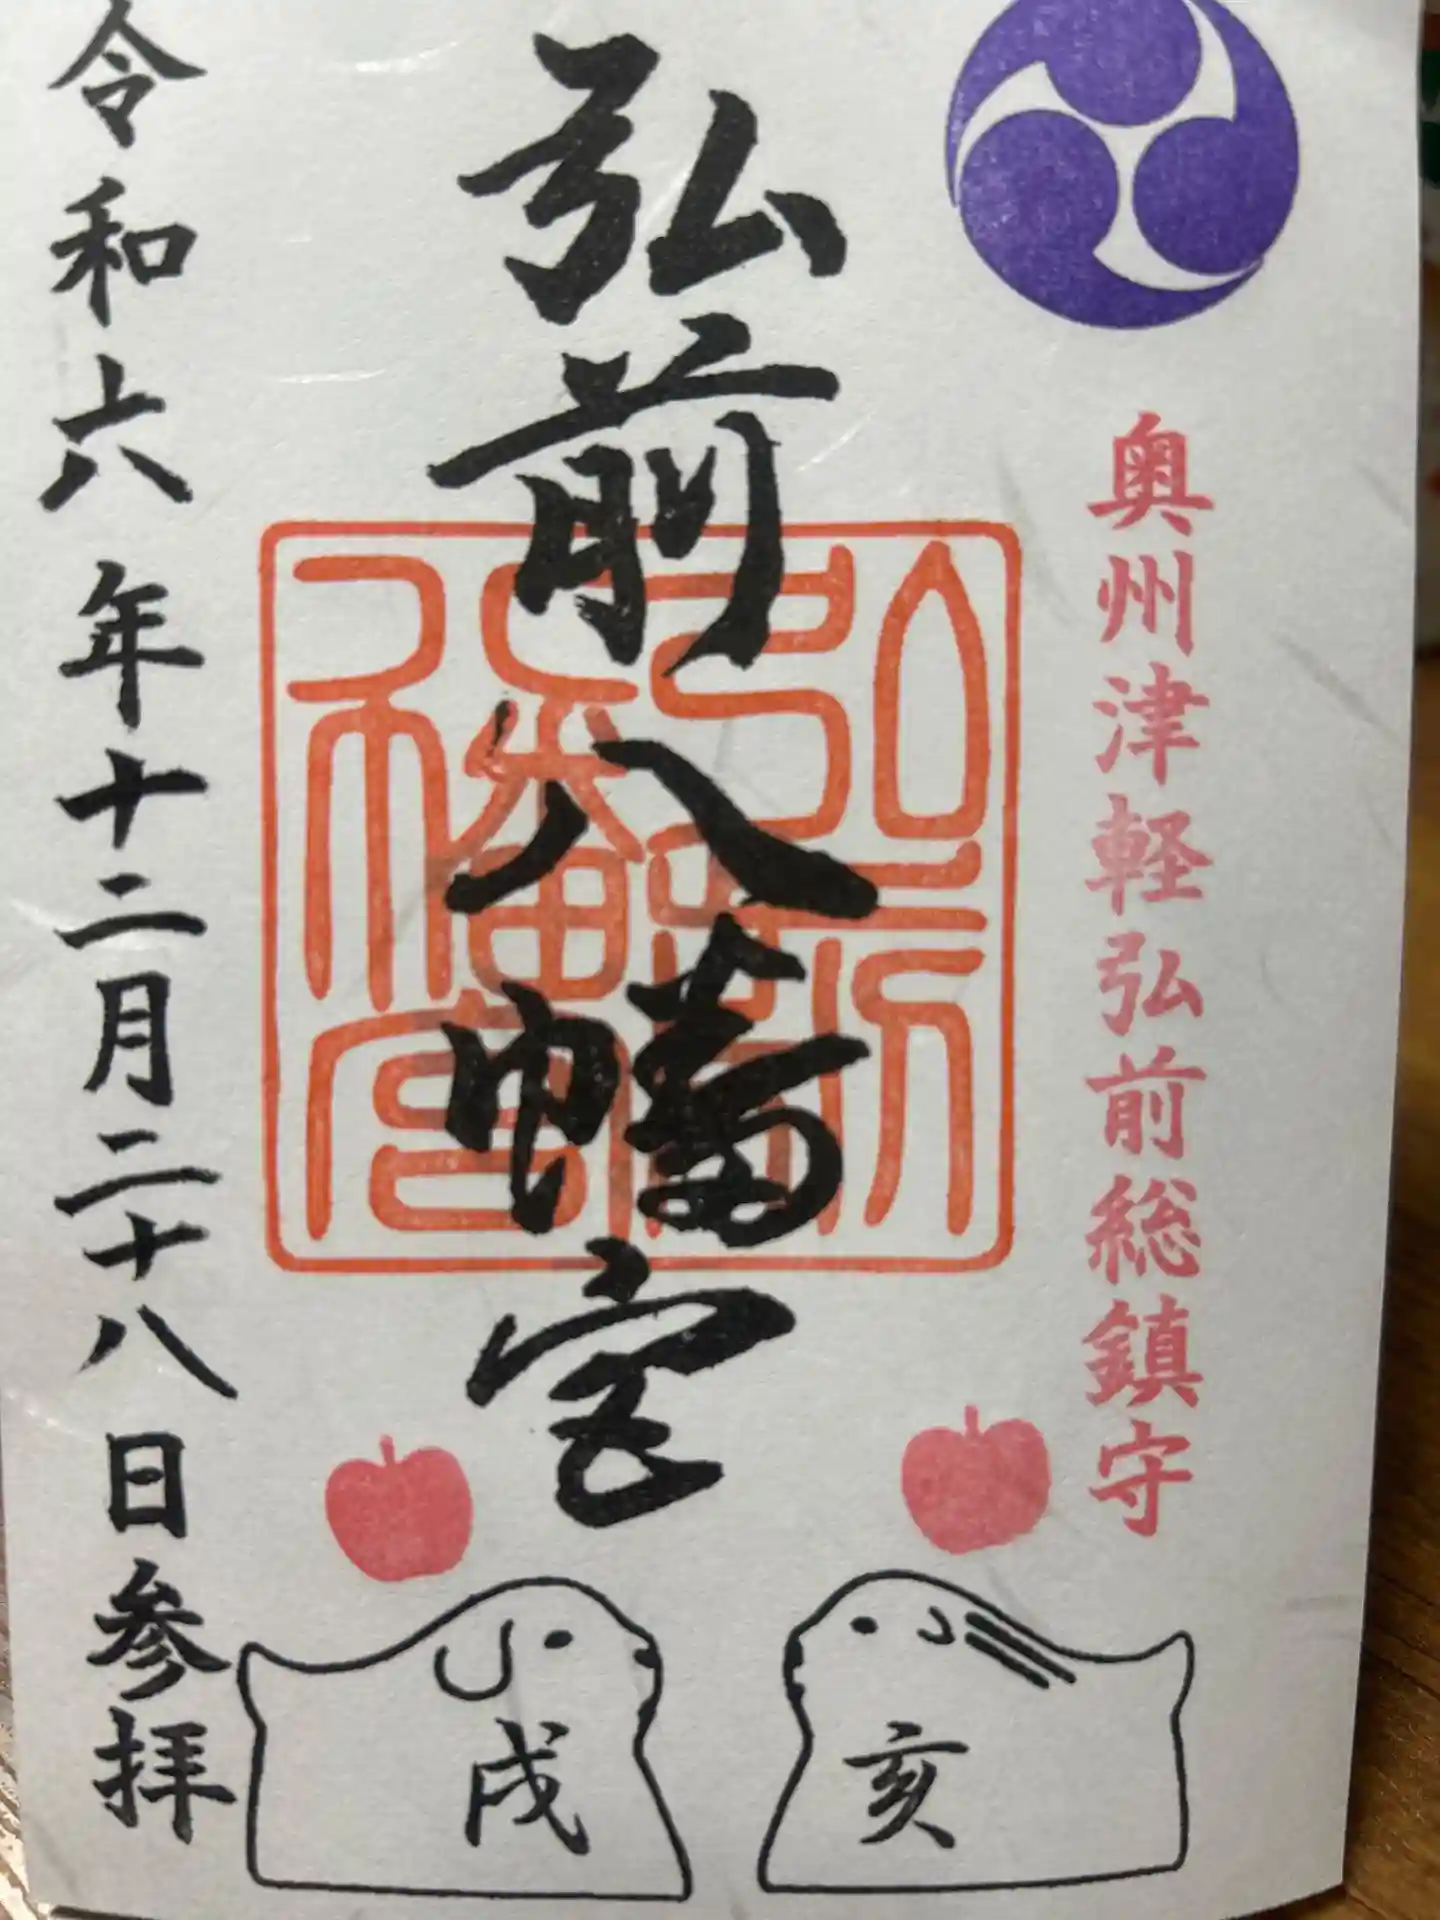 奥州津軽弘前総鎮守
弘前八幡宮
弘前八幡宮
令和六年十二月二十八日参拝
亥
戌